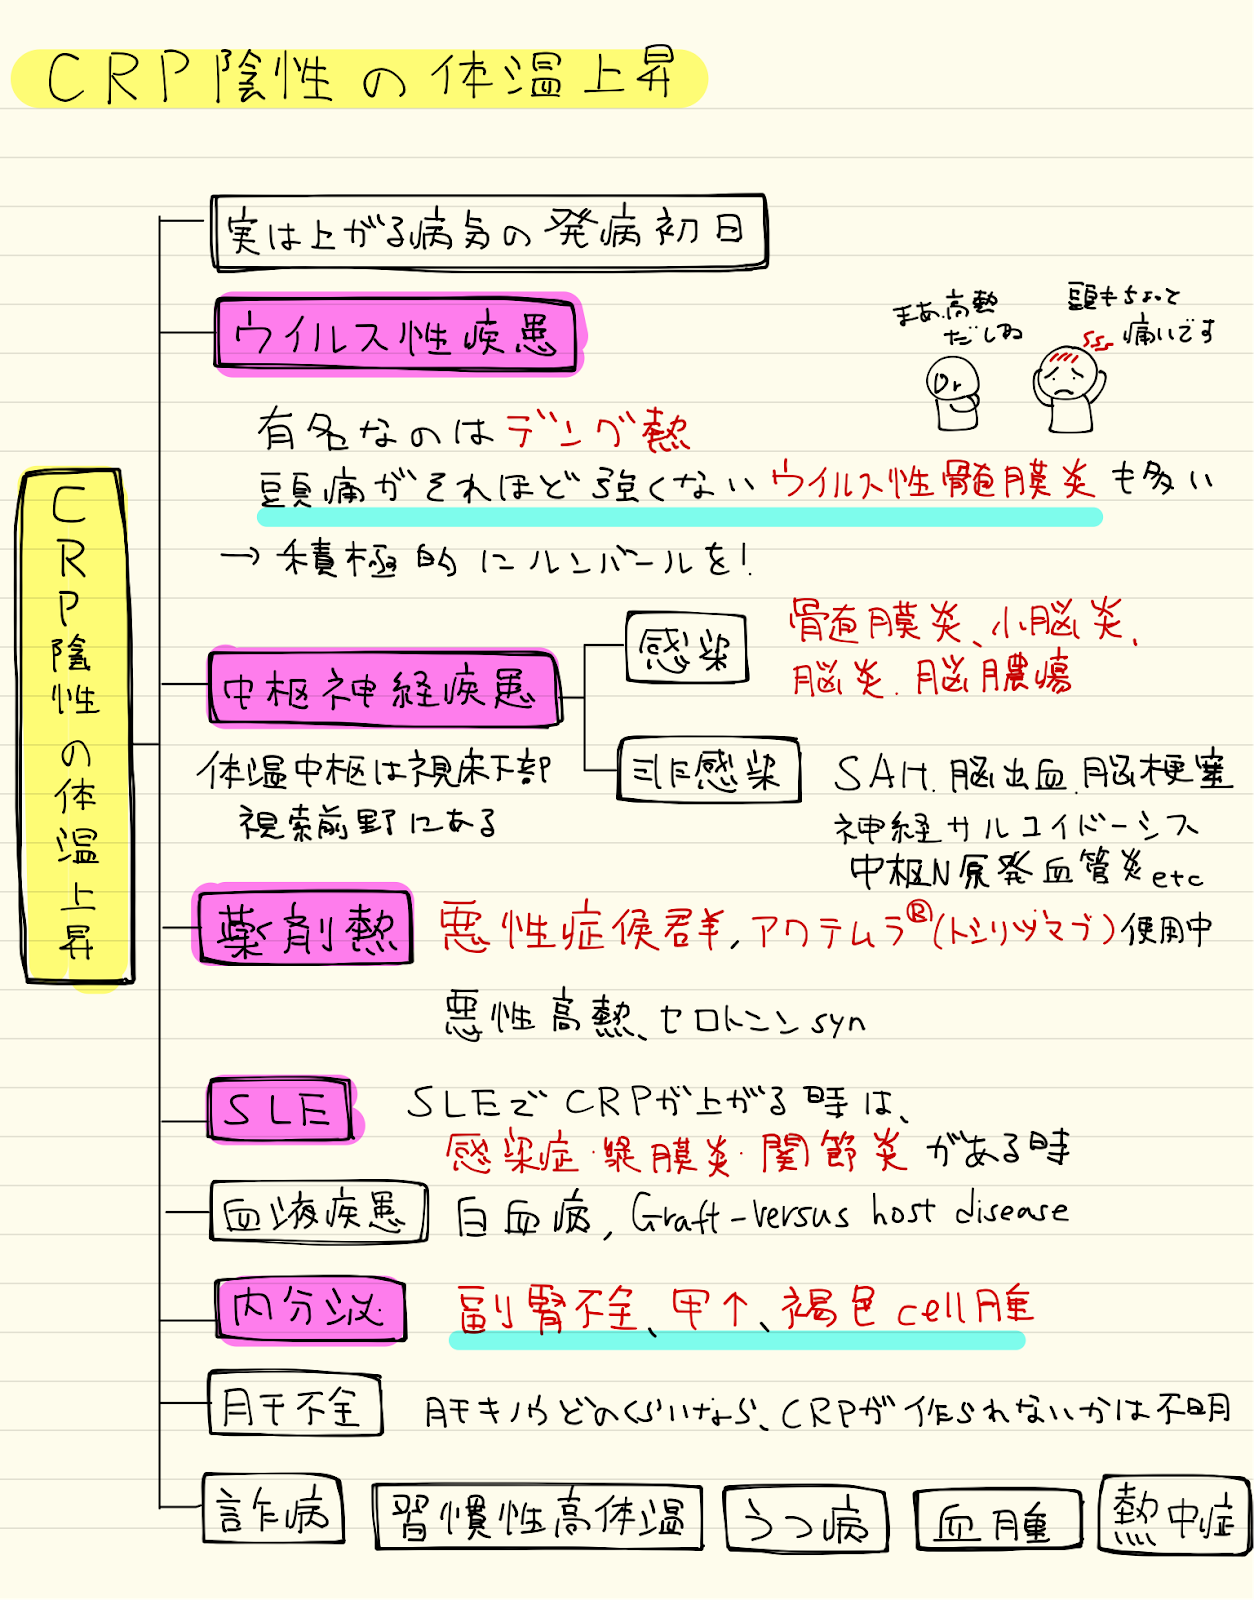 CRP陰性の体温上昇
CRP陰性の体温上昇
実は上がる病気の発病初日
ウイルス性疾患
まあ、高熱
だしね
Dr
頭もちょっと
痛いです
有名なのはデング熱
頭痛がそれほど強くないウイルス性髄膜炎も多い
→積極的にルンバールを!
中枢神経疾患
体温中枢は視床下部
視索前野にある
感染
髄膜炎、小脳炎、
脳炎、脳膿瘍
非感染
SAH、脳出血、脳梗塞
神経サルコイドーシス
中枢N原発血管炎etc
薬剤熱
悪性症候群, アクテムラ®(トシリヅマブ)使用中
悪性高熱、セロトニンsyn
SLE
SLEでCRPが上がる時は、
感染症・漿膜炎・関節炎がある時
血液疾患
白血病, Graft-versus host disease
内分泌
副腎不全、甲↑、褐色cell腫
肝不全
肝キノやどのくらいなら、CRPが作られないかは不明
詐病
習慣性高体温
うつ病
血腫
熱中症